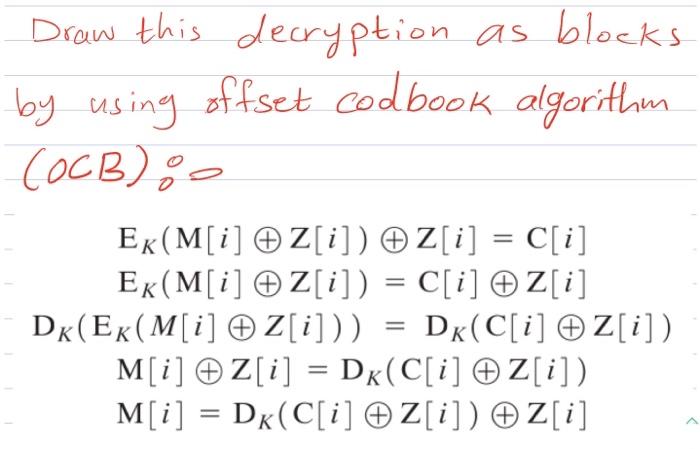 Draw this decryption as blocks
by using offset codbook algorithm
(OCB):-
E_K(M[i] ⊕ Z[i]) ⊕ Z[i] = C[i]
E_K(M[i] ⊕ Z[i]) = C[i] ⊕ Z[i]
D_K(E_K(M[i] ⊕ Z[i])) = D_K(C[i] ⊕ Z[i])
M[i] ⊕ Z[i] = D_K(C[i] ⊕ Z[i])
M[i] = D_K(C[i] ⊕ Z[i]) ⊕ Z[i]